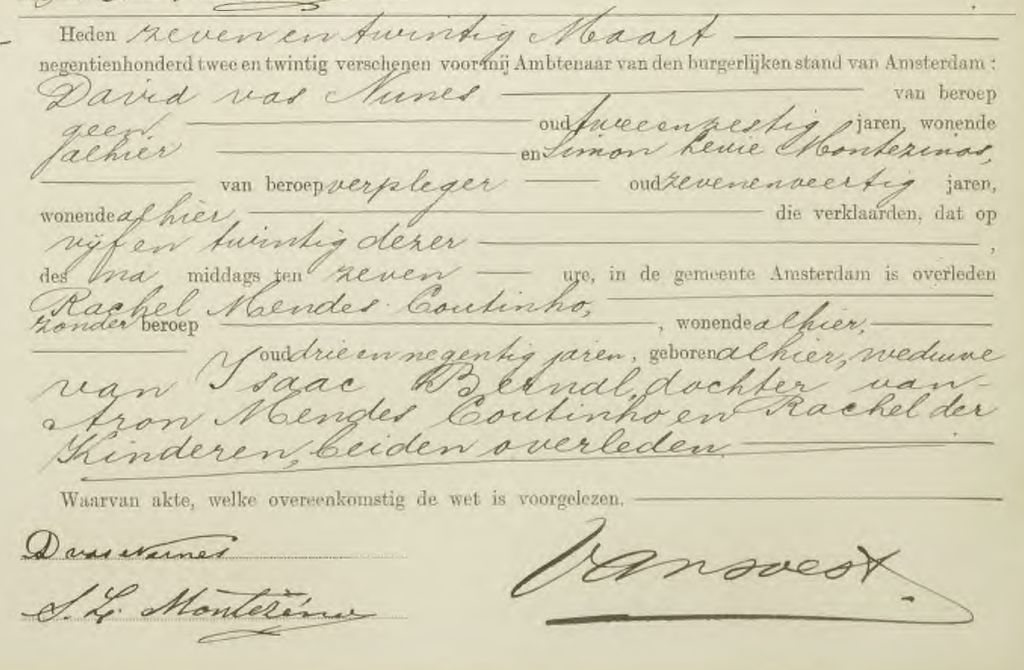 Heden zeven en twintig Maart
negentienhonderd twee en twintig verschenen voor mij Ambtenaar van den burgerlijken stand van Amsterdam:
David vas Nunes van beroep
geen, oud tweeenzestig jaren, wonende
alhier en Simon Levie Montezinos,
van beroep verpleger oud zevenenveertig jaren,
wonende alhier, die verklaarden, dat op
vijf en twintig dezer,
des na middags ten zeven ure, in de gemeente Amsterdam is overleden
Rachel Mendes Coutinho,
zonder beroep, wonende alhier,
oud drie en negentig jaren, geboren alhier, weduwe
van Isaac Bernal, dochter van
Aron Mendes Coutinho en Rachel der
Kinderen, beiden overleden.
Waarvan akte, welke overeenkomstig de wet is voorgelezen.
D vas Nunes
S. L. Montezinos